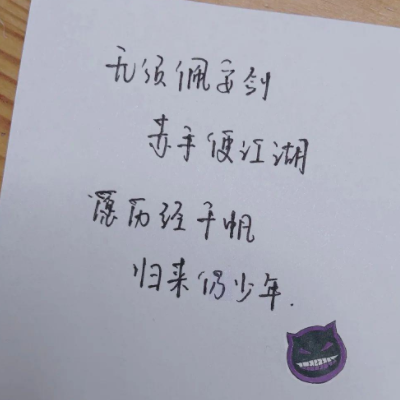 无须佩宝剑
赤手便江湖
愿历经千帆
归来仍少年.